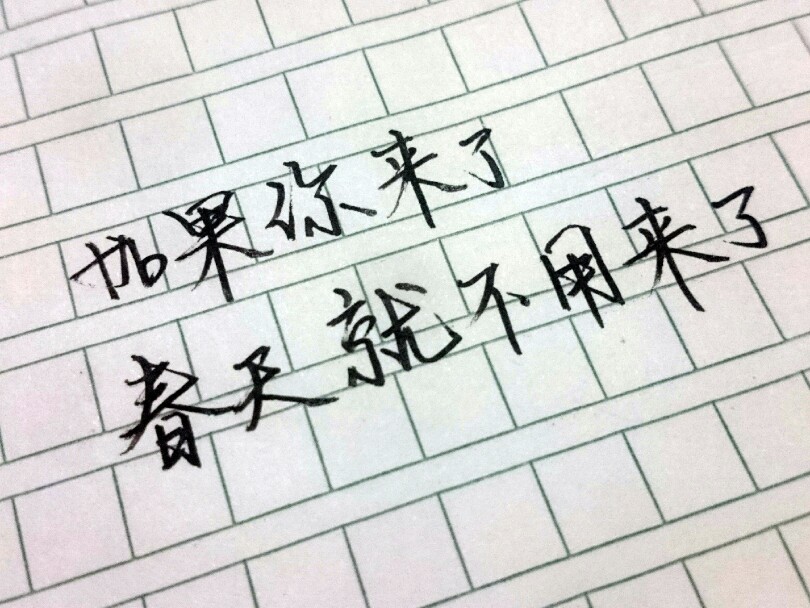 如果你来了
春天就不用来了